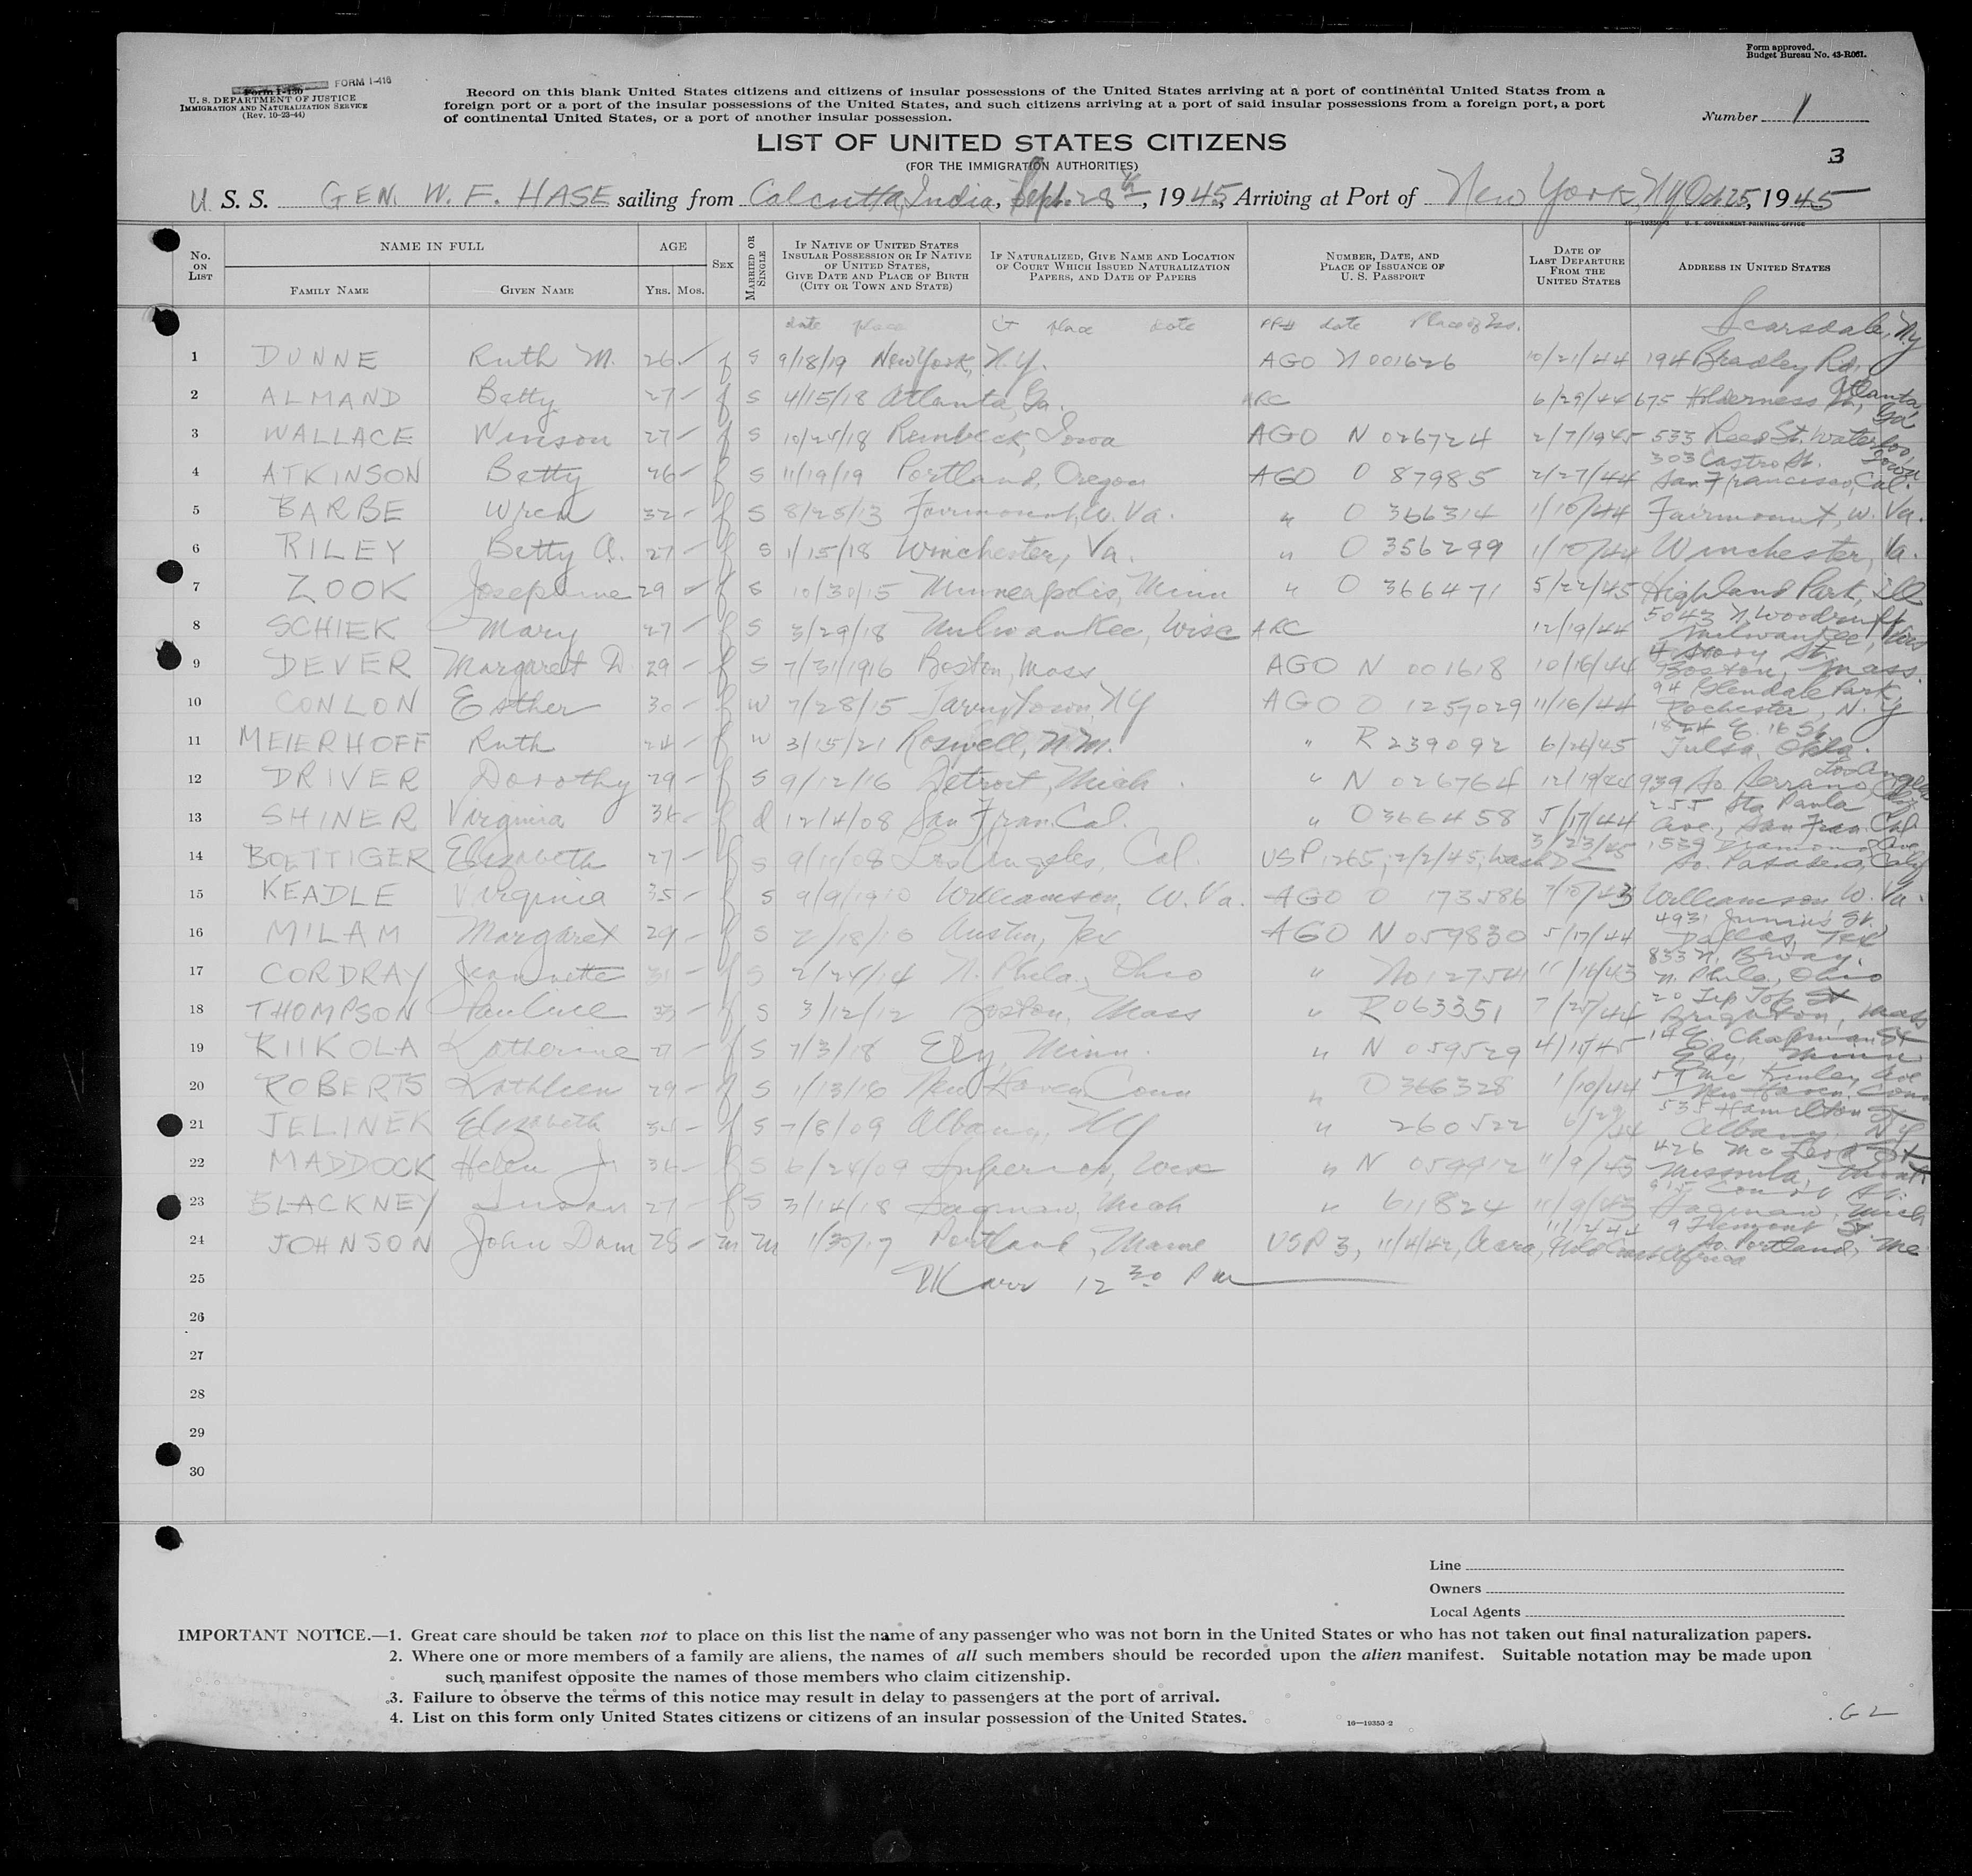 Form approved.
Budget Bureau No. 43-R061.
Form I-430 FORM I-416
U. S. DEPARTMENT OF JUSTICE
IMMIGRATION AND NATURALIZATION SERVICE
(Rev. 10-23-44)
Record on this blank United States citizens and citizens of insular possessions of the United States arriving at a port of continental United States from a
foreign port or a port of the insular possessions of the United States, and such citizens arriving at a port of said insular possessions from a foreign port, a port
of continental United States, or a port of another insular possession.
Number 1
LIST OF UNITED STATES CITIZENS
(FOR THE IMMIGRATION AUTHORITIES)
3
U. S. S. GEN. W. F. HASE sailing from Calcutta, India, Sept. 28th, 1945, Arriving at Port of New York, NY Oct 25, 1945
16—19350-2 U. S. GOVERNMENT PRINTING OFFICE
No. ON LIST
NAME IN FULL
FAMILY NAME
GIVEN NAME
AGE
YRS. MOS.
SEX
MARRIED OR SINGLE
IF NATIVE OF UNITED STATES INSULAR POSSESSION OR IF NATIVE OF UNITED STATES, GIVE DATE AND PLACE OF BIRTH (CITY OR TOWN AND STATE)
IF NATURALIZED, GIVE NAME AND LOCATION OF COURT WHICH ISSUED NATURALIZATION PAPERS, AND DATE OF PAPERS
NUMBER, DATE, AND PLACE OF ISSUANCE OF U. S. PASSPORT
DATE OF LAST DEPARTURE FROM THE UNITED STATES
ADDRESS IN UNITED STATES
date place Ct place date PP# date Place of Iss.
1 DUNNE Ruth M. 26 f S 9/18/19 New York, N.Y. AGO N 001626 10/21/44 194 Bradley Rd, Scarsdale, N.Y.
2 ALMAND Betty 27 f S 4/15/18 Atlanta, Ga. ARC 6/29/44 675 Atlanta, Ga
3 WALLACE Winson 27 f S 10/25/18 Reinbeck, Iowa AGO N 026724 2/7/1945 533 Reed St. Waterloo, Iowa
4 ATKINSON Betty 26 f S 11/19/19 Portland, Oregon AGO O 87985 2/27/44 303 Castro St. San Francisco, Cal.
5 BARBE Wren 32 f S 8/25/13 Fairmount, W. Va. " O 366314 1/10/44 Fairmount, W. Va.
6 RILEY Betty A. 27 f S 1/15/18 Winchester, Va. " O 356299 1/10/44 Winchester, Va.
7 ZOOK Josephine 29 f S 10/30/15 Minneapolis, Minn " O 366471 5/22/45 Highland Park, Ill
8 SCHIEK Mary 27 f S 3/29/18 Milwaukee, Wisc ARC 12/19/44 5043 N. Woodruff Milwaukee, Wis
9 DEVER Margaret D. 29 f S 7/31/1916 Boston, Mass AGO N 001618 10/16/44 4 Story St. Boston, Mass.
10 CONLON Esther 30 f W 7/28/15 Tarrytown, NY AGO O 1259029 11/16/44 94 Glendale Park, Rochester, N.Y
11 MEIERHOFF Ruth 24 f W 3/15/21 Roswell, N.M. " R 239092 6/26/45 1824 E. 16 St. Tulsa, Okla.
12 DRIVER Dorothy 29 f S 9/12/16 Detroit, Mich. " N 026764 12/19/44 939 So. Serrano, Los Angeles
13 SHINER Virginia 36 f d 12/4/08 San Fran. Cal. " O 366458 5/17/44 255 Sta Paula Ave., San Fran. Cal
14 BOETTIGER Elizabeth 27 f S 9/11/08 Los Angeles, Cal. USP 1265, 2/2/45, Wash DC 3/23/45 1539 Diamond Ave So. Pasadena, Calif
15 KEADLE Virginia 35 f S 9/9/1910 Williamson, W. Va. AGO O 173586 7/10/43 Williamson W. Va.
16 MILAM Margaret 29 f S 2/18/16 Austin, Tex AGO N 059830 5/17/44 4931 Junius St. Dallas, Tex
17 CORDRAY Jeannette 31 f S 2/24/14 N. Phila., Ohio " No 127541 11/16/43 833 N. Bway. N. Phila, Ohio
18 THOMPSON Pauline 33 f S 3/12/12 Boston, Mass " R 063351 7/25/44 20 Tip Top St Brighton, Mass
19 RIIKOLA Katherine 27 f S 7/3/18 Ely, Minn. " N 059529 4/15/45 14 E. Chapman St Ely, Minn
20 ROBERTS Kathleen 29 f S 1/13/16 New Haven Conn " O 366328 1/10/44 57 Mc Kinley Ave New Haven Conn
21 JELINEK Elizabeth 35 f S 7/8/09 Albany, NY " 260522 6/29/44 535 Hamilton St Albany, N.Y
22 MADDOCK Helen J. 36 f S 6/24/09 Superior, Wisc " N 059912 11/9/43 426 McLeod St Missoula, Mont
23 BLACKNEY Susan 27 f S 3/14/18 Saginaw, Mich " 611824 11/9/43 915 Court St. Saginaw, Mich
24 JOHNSON John Dam 28 m m 1/30/17 Portland, Maine USP 3, 11/4/42, Accra, Gold Coast Africa 11/12/42 9 Fremont St. So. Portland, Me
25 arr 12 30 PM
26
27
28
29
30
Line
Owners
Local Agents
IMPORTANT NOTICE.—1. Great care should be taken not to place on this list the name of any passenger who was not born in the United States or who has not taken out final naturalization papers.
2. Where one or more members of a family are aliens, the names of all such members should be recorded upon the alien manifest. Suitable notation may be made upon
such manifest opposite the names of those members who claim citizenship.
3. Failure to observe the terms of this notice may result in delay to passengers at the port of arrival.
4. List on this form only United States citizens or citizens of an insular possession of the United States.
16—19350-2
G 2